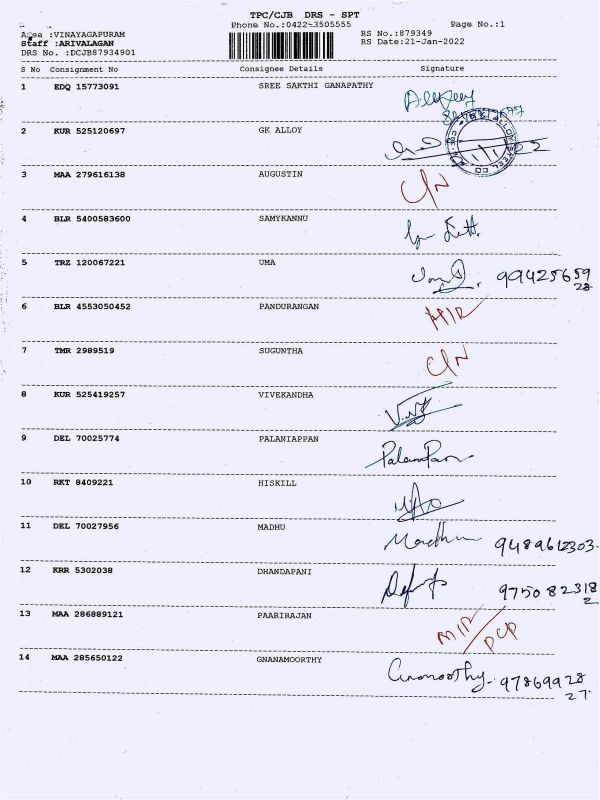 TPC/CJB DRS - SPT
Phone No.:0422-3505555 Page No.:1
Area :VINAYAGAPURAM RS No.:879349
Staff :ARIVALAGAN RS Date:21-Jan-2022
DRS No. :DCJB87934901
S No Consignment No Consignee Details Signature
1 EDQ 15773091 SREE SAKTHI GANAPATHY
2 KUR 525120697 GK ALLOY
3 MAA 279616138 AUGUSTIN C/N
4 BLR 5400583600 SAMYKANNU
5 TRZ 120067221 UMA 99425659
28
6 BLR 4553050452 PANDURANGAN
7 TMR 2989519 SUGUNTHA C/N
8 KUR 525419257 VIVEKANDHA
9 DEL 70025774 PALANIAPPAN
10 RKT 8409221 HISKILL
11 DEL 70027956 MADHU Madhu 9489612303.
12 KRR 5302038 DHANDAPANI 975082318
2
13 MAA 286889121 PAARIRAJAN MIR/PCP
14 MAA 285650122 GNANAMOORTHY Gnanoorthy. 97869928
27.